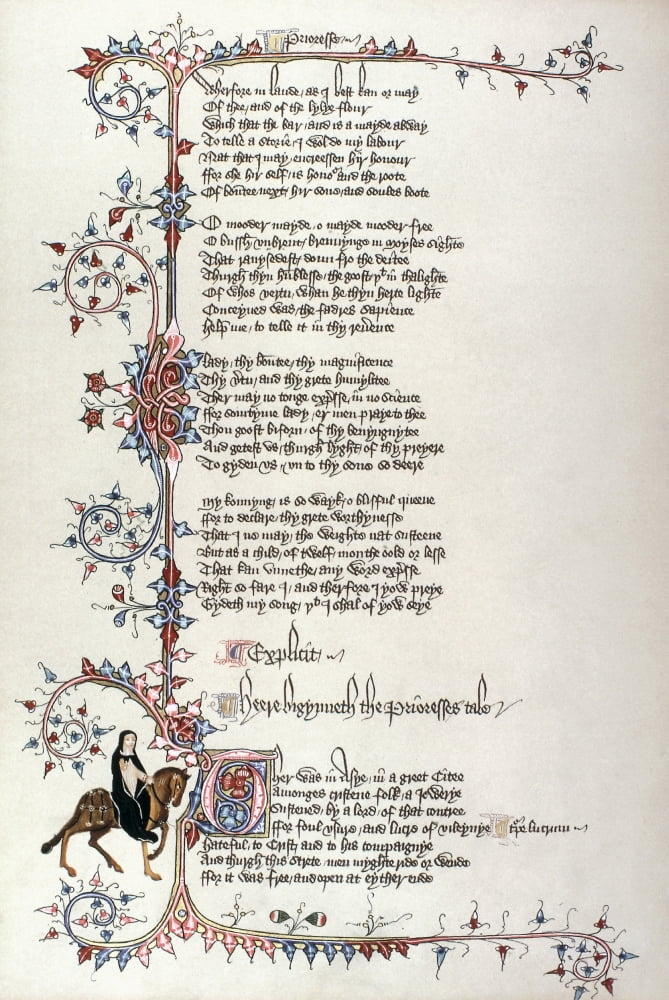 Prioresse
Wherfore in laude, as I best kan or may
Of thee, and of the lylye flour
Which that the bar, and is a mayde alway
To telle a storie, I wol do my labour
Nat that I may, encreessen hir honour
ffor she hir self, is honour and the roote
Of bountee next, hir sone, and soules boote
O mooder mayde, o mayde mooder free
O bussh, vnbrent, brennynge in Moyses sighte
That rauysedest, doun fro the deitee
Thurgh thyn humblesse, the goost yt in thalighte
Of whos vertu, whan he thyn herte lighte
Conceyued was, the fadres sapience
Help me, to telle it in thy reuerence
Lady, thy bountee, thy magnificence
Thy vertu, and thy grete humylitee
Ther may no tonge expresse, in no science
ffor somtyme lady, er men praye to thee
Thou goost biforn, of thy benyngnytee
And getest vs, thurgh lyght, of thy preyere
To gyden vs, vn to thy sone so deere
My konnyng, is so wayk, o blisful queene
ffor to declare, thy grete worthynesse
That I ne may, the weighte nat susteene
But as a child, of twelf monthe oold or lesse
That kan vnnethe, any word expresse
Right so fare I, and therfore I yow preye
Gydeth my song, yt I shal of yow seye
Explicit
Heere bigynneth the Prioresses tale
Ther was in Asye, in a greet Citee
Amonges cristene folk, a Jewerye
Sustened, by a lord, of that contree
ffor foul vsure, and lucre of vileynye
Hateful, to Crist, and to his compaignye
And thurgh this strete, men myghte ride or wende
ffor it was free, and open at eyther ende